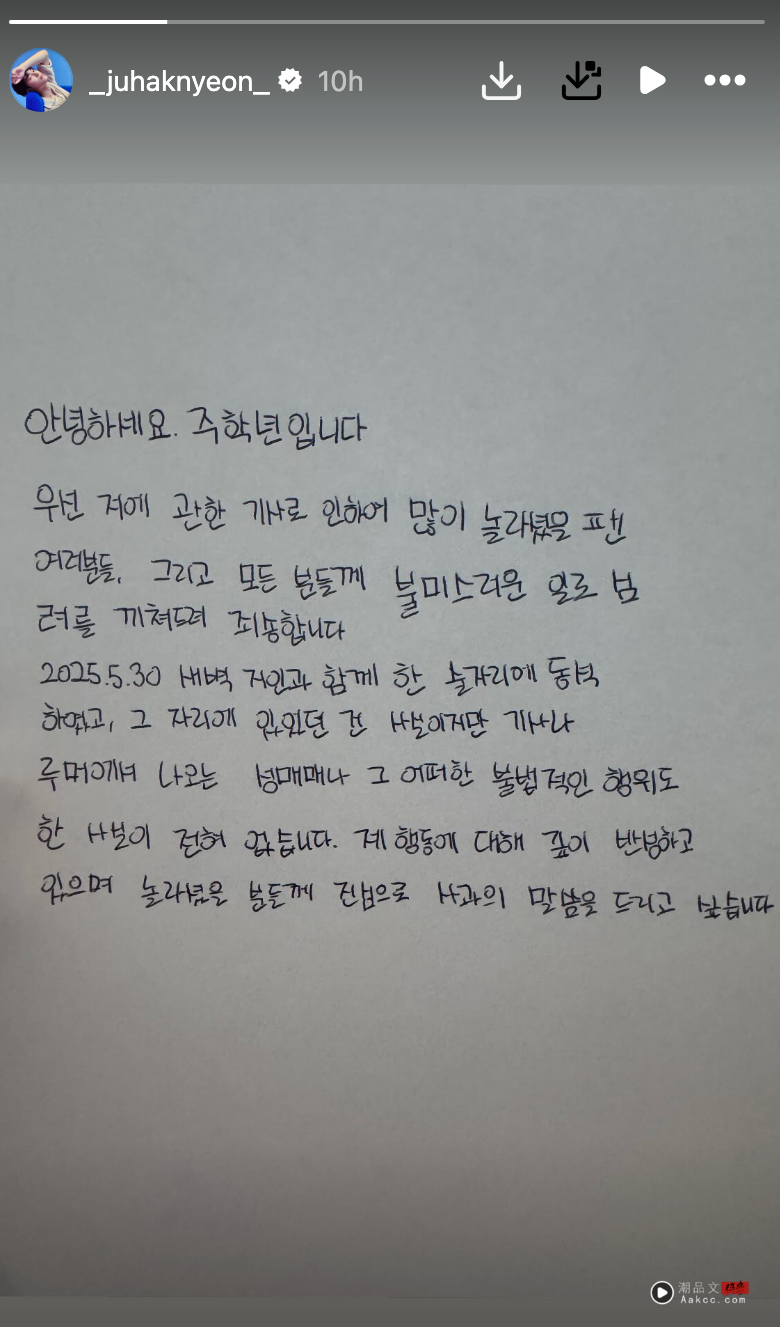 _juhaknyeon_ 10h
안녕하세요. 주학년입니다
우선 저에 관한 기사로 인하여 많이 놀라셨을 팬
여러분들, 그리고 모든 분들께 불미스러운 일로 심
려를 끼쳐드려 죄송합니다
2025.5.30 새벽 지인과 함께 한 술자리에 동석
하였고, 그 자리에 있었던 건 사실이지만 기사나
루머에서 나오는 성매매나 그 어떠한 불법적인 행위도
한 사실이 전혀 없습니다. 제 행동에 대해 깊이 반성하고
있으며 놀라셨을 분들께 진심으로 사과의 말씀을 드리고 싶습니다
潮品文
Aakcc.com